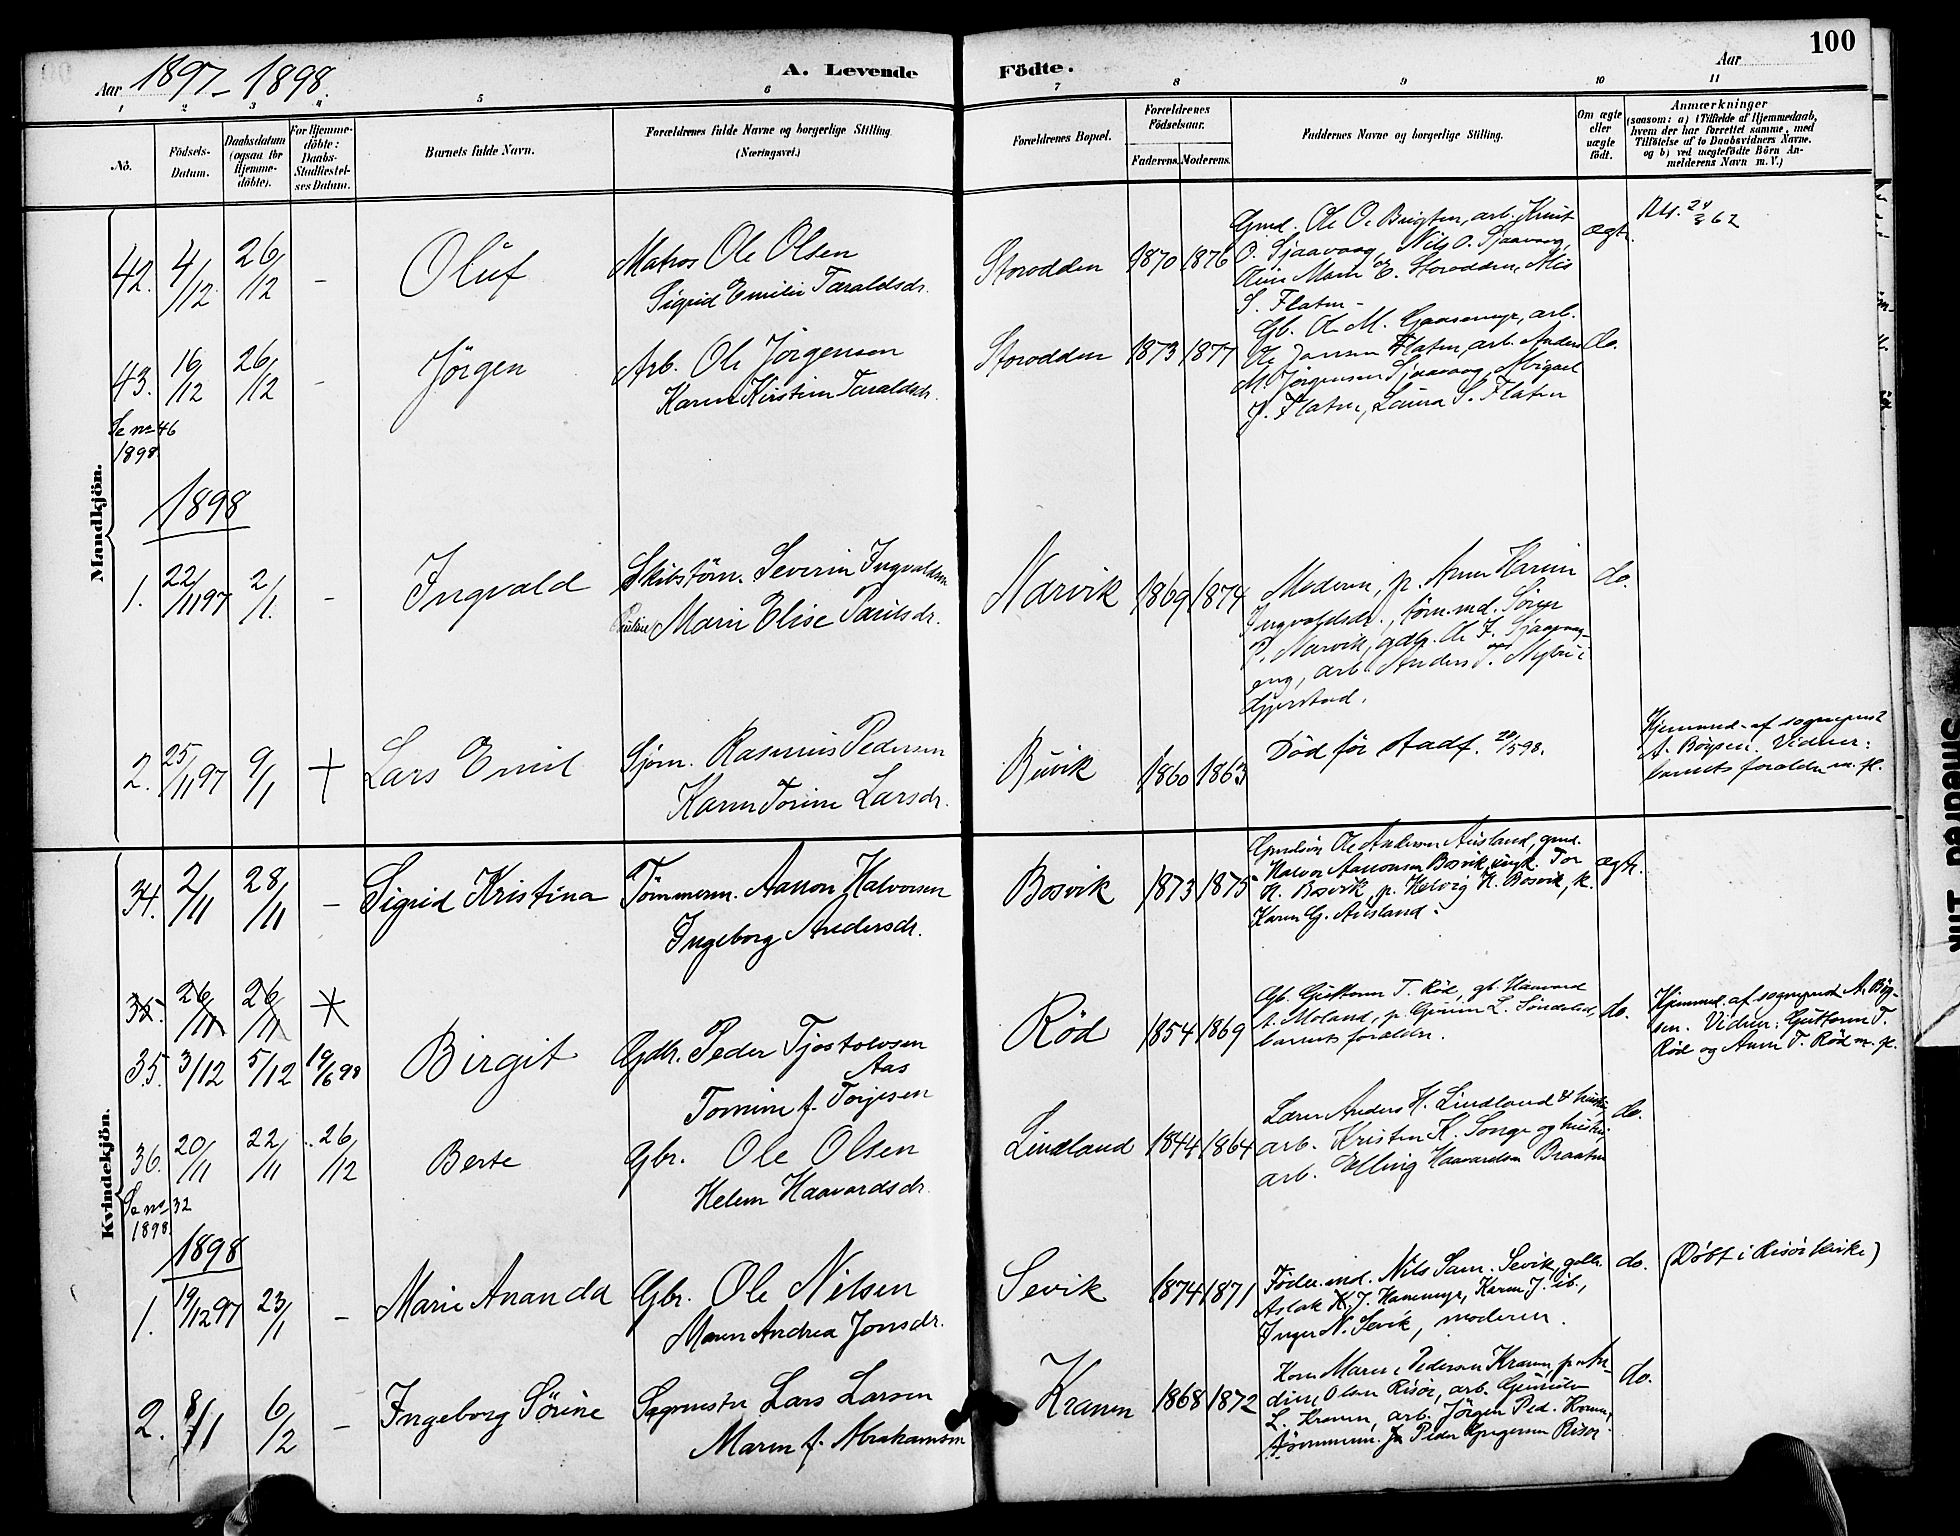 100
Aar 1897-1898. A. Levende Födte. Aar
1 2 3 4 5 6 7 8 9 10 11
No. Födsels-Datum. Daabsdatum (ogsaa for Hjemmedöbte). For Hjemmedöbte: Daabs-Stadfæstelses Datum. Barnets fulde Navn. Forældrenes fulde Navne og borgerlige Stilling. (Næringsvei.) Forældrenes Bopæl. Forældrenes Födselsaar. Faderens. Moderens. Faddernes Navne og borgerlige Stilling. Om ægte eller uægte født. Anmærkninger (saasom: a) i Tilfælde af Hjemmedaab, hvem der har forrettet samme, med Tilföielse af to Daabsvidners Navne, og b) ved uægtefödte Börn Anmelderens Navn m. V.)
Mandkjön.
42. 4/12 26/12 - Oluf Matros Ole Olsen
Sigrid Emilie Taraldsdr.
Storodden 1870 1876
O. Sjaavaag, Nils O. Sjaavaag,
S. Flaten -
ægte.
43. 16/12 26/12 - Jörgen Arb. Ole Jörgensen
Karen Kirstine Taraldsdr.
Storodden 1873 1877
Gb. Ole M. Gaasemyr, arb.
Ole Jansen Flaten, arb. Anders
M. Jörgensen Sjaavaag, Abigael
J. Flaten, Laura S. Flaten
do.
Se no 46
1898.
1898
1. 22/11 97 2/1. - Ingvald Skibstöm. Severin Ingvaldsen
Marie Elise Paulsdr.
Narvik 1869 1874
Moderen, p. Anne Karine
Ingvaldsdr., töm.md. Sören
P. Narvik, gdb. Ole F. Sjaavaag-
eng, arb. Anders T. Myhre i
Gjerstad.
do.
2. 25/11 97 9/1 + Lars Emil Sjöm. Rasmus Pedersen
Karen Torine Larsdr.
Buvik 1860 1863
Död för stadf. 20/5 98.
Hjemmed. af sogneprest
A. Böysen. Vidner:
barnets forældre m. fl.
Kvindekjön.
34. 2/11 28/11 - Sigrid Kristina Tömmerm. Aanon Halvorsen
Ingeborg Andersdr.
Bosvik 1873 1875
Ole Andersen Ausland, gmd.
Halvor Aanonsen Bosvik, ungk. Tor
H. Bosvik, p. Helvig H. Bosvik, k.
Karen G. Ausland.
ægte.
35. 26/11 26/11
35. 3/12 5/12 19/6 98 Birgit Gdbr. Peder Tjostolvsen
Aas
Tomine f. Torjesen
Röd 1854 1869
Gb. Guttorm T. Röd, gb. Haavard
A. Moland, p. Gunine L. Söndeled,
barnets forældre.
do.
Hjemmed. af sogneprest A. Böy-
sen. Vidner: Guttorm T.
Röd og Anne T. Röd m. fl.
36. 20/11 22/11 26/12 Berte Gbr. Ole Olsen
Helene Haavardsdr.
Lindland 1844 1864
Lærer Anders H. Lindland & hustru,
arb. Kristen K. Songe og hustru,
arb. Elling Haavardsen Braaten
do.
Se no 32
1898.
1898
1. 19/12 97 23/1 - Marie Ananda Gbr. Ole Nilsen
Maren Andrea Jonsdr.
Sevik 1874 1871
Föder.md. Nils Sam. Sevik, gdbr.
Aslak K. J. Hanemyr, Karen J. ib.,
Inger N. Sevik, moderen.
do.
(Döbt i Risör kirke)
2. 8/1 6/2 - Ingeborg Sörine Sagmester Lars Larsen
Maren f. Abrahamsen
Kranen 1868 1872
Kone Maren Pedersen Kranen, p. An-
dine Olsen Risör, arb. Gunuld
L. Kranen, arb. Jörgen Ped. Kranen,
Tömmerm. Peder Gregersen Risör
do.